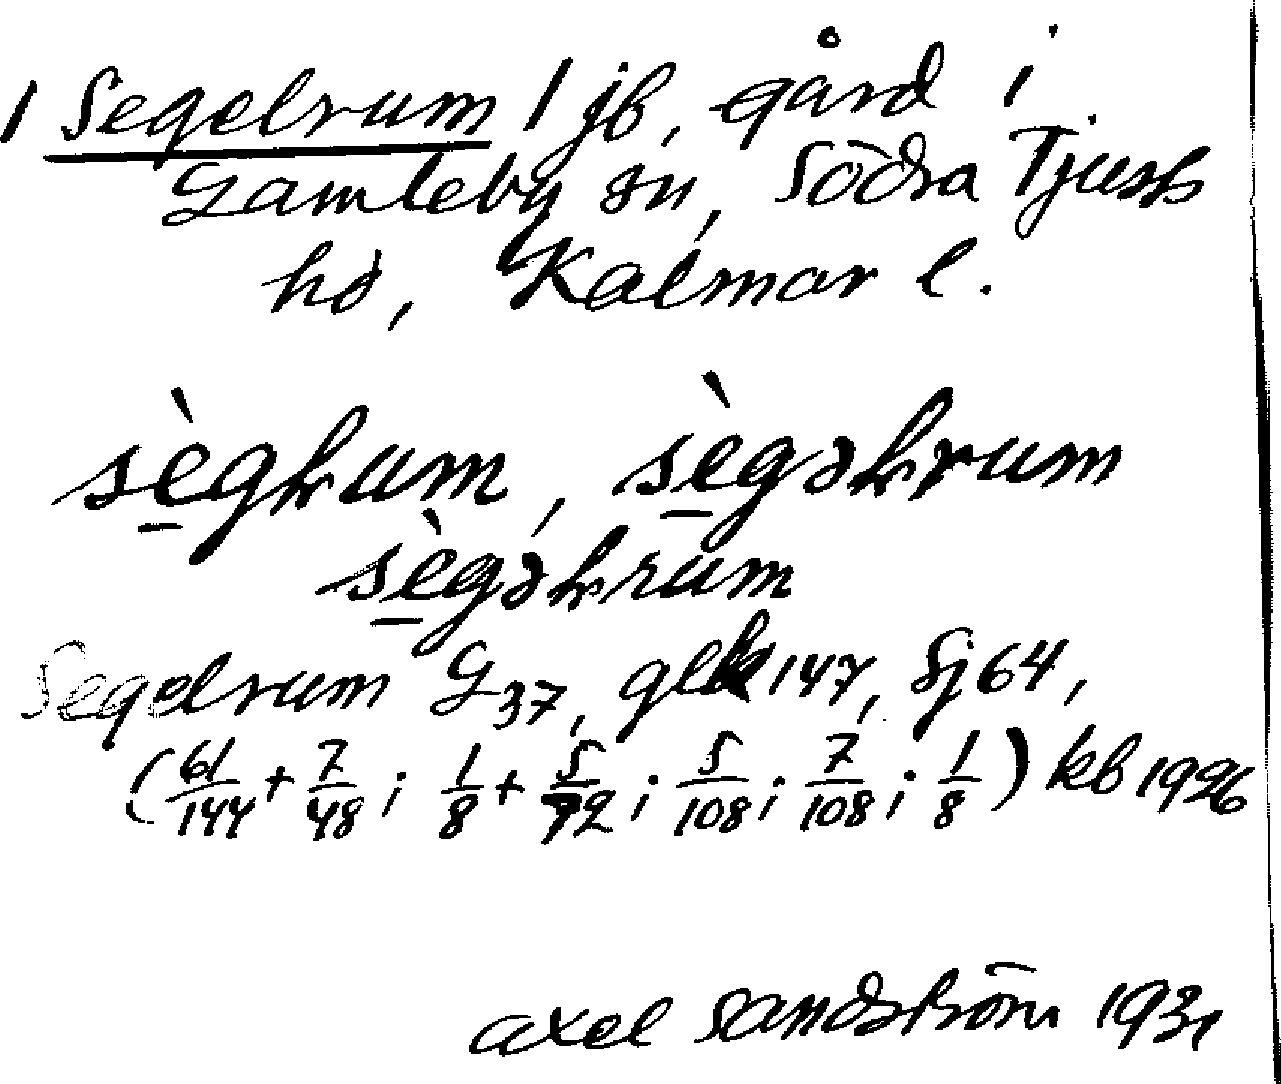 1 Segelrum 1 jb, gård i
Gamleby sn, Södra Tjusts
hd, Kalmar l.
sè̱gɫrum, sè̱gəɫrum
sè̱gəɫrum
Segelrum G37, 147, Sj 64,
(61/144 + 7/48; 1/8 + 5/72; 5/108; 7/108; 1/8) kb 1926
axel Sandström 1931